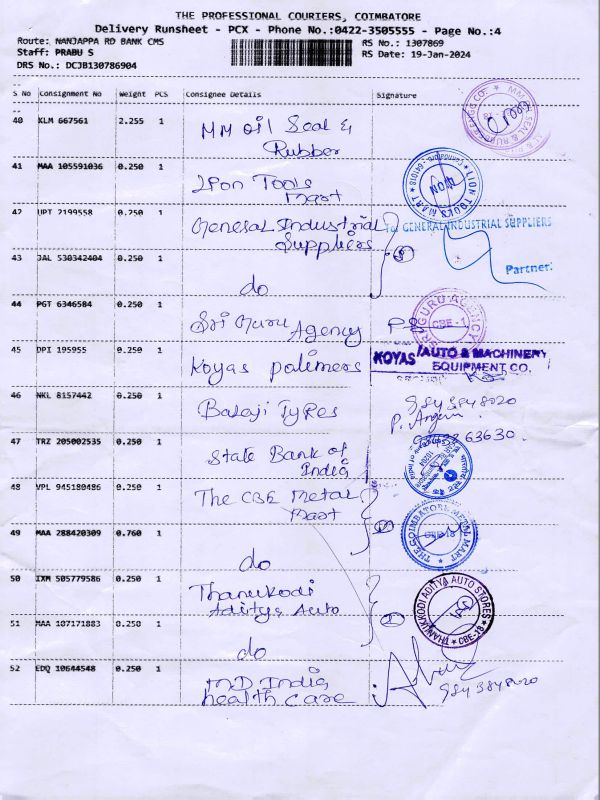 THE PROFESSIONAL COURIERS, COIMBATORE
Delivery Runsheet - PCX - Phone No.:0422-3505555 - Page No.:4
Route: NANJAPPA RD BANK CMS
RS No.: 1307869
Staff: PRABU S
RS Date: 19-Jan-2024
DRS No.: DCJB130786904
S No Consignment No Weight PCS Consignee Details Signature
40 KLM 667561 2.255 1 MM Oil Seal &
Rubber
41 MAA 105591036 0.250 1 Lion Tools
Mart
LION TOOLS MART
42 UPT 2199558 0.250 1 General Industrial
Suppliers
For GENERAL INDUSTRIAL SUPPLIERS
Partner.
43 JAL 530342404 0.250 1
do
44 PGT 6346584 0.250 1 Sri Guru Agency
SRI GURU AGENCY
CBE - 1
45 DPI 195955 0.250 1 Koyas polimers
KOYAS AUTO & MACHINERY
EQUIPMENT CO.
46 NKL 8157442 0.250 1 Balaji Tyres
984 384 8020
47 TRZ 205002535 0.250 1 State Bank of
India
48 VPL 945180486 0.250 1 The CBE Metal
Mart
49 MAA 288420309 0.760 1
THE COIMBATORE METAL MART
do
50 IXM 505779586 0.250 1 Thanukodi
Aditya Auto
THANUKKODI ADITYA AUTO STORES
CBE-18
51 MAA 107171883 0.250 1
do
52 EDQ 10644548 0.250 1 IND India
health care
984 384 8020